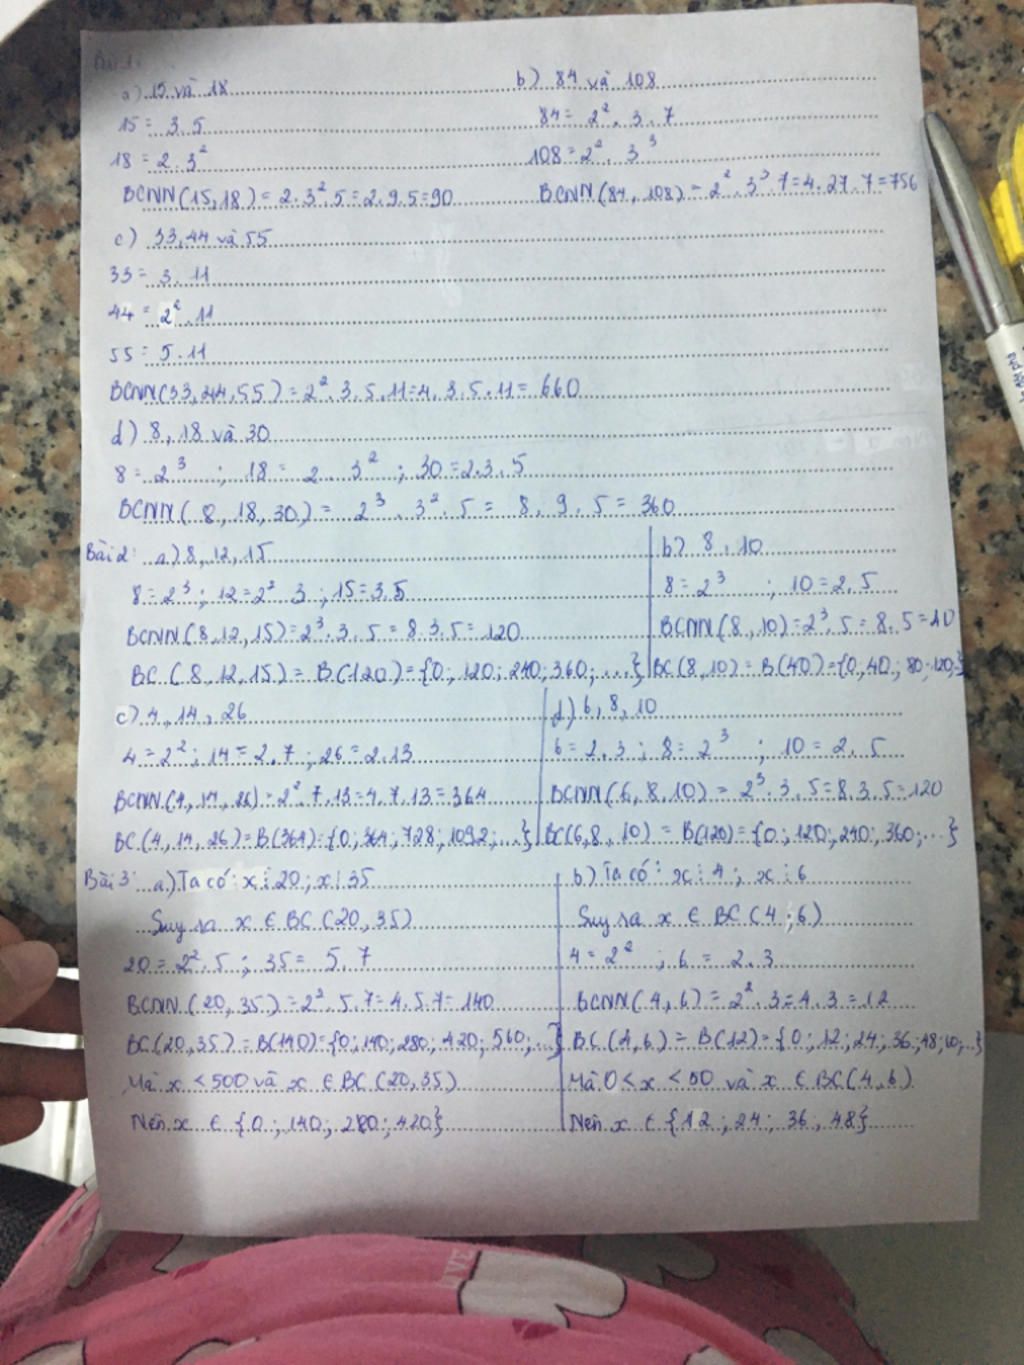 Bài 1:
a) 15 và 18
15 = 3.5
18 = 2.3²
BCNN(15,18) = 2.3².5=2.9.5=90
b) 84 và 108
84 = 2².3.7
108 = 2².3³
BCNN(84,108) = 2².3³.7=4.27.7=756
c) 33,44 và 55
33 = 3.11
44 = 2².11
55 = 5.11
BCNN(33,44,55) = 2².3.5.11=4.3.5.11=660
d) 8,18 và 30
8 = 2³ ; 18 = 2.3² ; 30 = 2.3.5
BCNN(8,18,30) = 2³.3².5 = 8.9.5 = 360
Bài 2: a) 8,12,15
8 = 2³ ; 12 = 2² 3 ; 15 = 3.5
BCNN(8,12,15) = 2³.3.5 = 8.3.5 = 120
BC(8,12,15) = B(120) = {0;120;240;360;...}
b) 8,10
8 = 2³ ; 10 = 2.5
BCNN(8,10) = 2³.5 = 8.5 = 40
BC(8,10) = B(40) = {0;40;80;120;}
c) 4,14,26
4 = 2² ; 14 = 2.7 ; 26 = 2.13
BCNN(4,14,26) = 2².7.13 = 4.7.13 = 364
BC(4,14,26) = B(364) = {0;364;728;1092;...}
d) 6,8,10
6 = 2.3 ; 8 = 2³ ; 10 = 2.5
BCNN(6,8,10) = 2³.3.5 = 8.3.5 = 120
BC(6,8,10) = B(120) = {0;120;240;360;...}
Bài 3: a) Ta có: x⋮20; x⋮35
Suy ra x ∈ BC(20,35)
20 = 2².5 ; 35 = 5.7
BCNN(20,35) = 2².5.7 = 4.5.7 = 140
BC(20,35) = B(140) = {0;140;280;420;560;...}
Mà x < 500 và x ∈ BC(20,35)
Nên x ∈ {0;140;280;420}
b) Ta có: x⋮4; x⋮6
Suy ra x ∈ BC(4;6)
4 = 2² ; 6 = 2.3
BCNN(4,6) = 2².3 = 4.3 = 12
BC(4,6) = B(12) = {0;12;24;36;48;60;...}
Mà 0 < x < 50 và x ∈ BC(4,6)
Nên x ∈ {12;24;36;48}